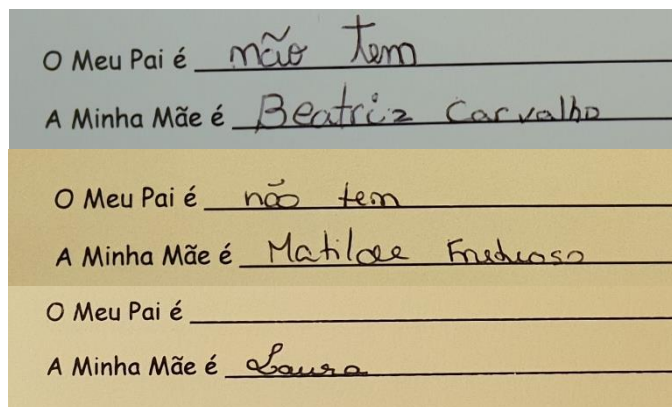 O Meu Pai é não tem
A Minha Mãe é Beatriz Carvalho
O Meu Pai é não tem
A Minha Mãe é Matilde
O Meu Pai é
A Minha Mãe é Laura